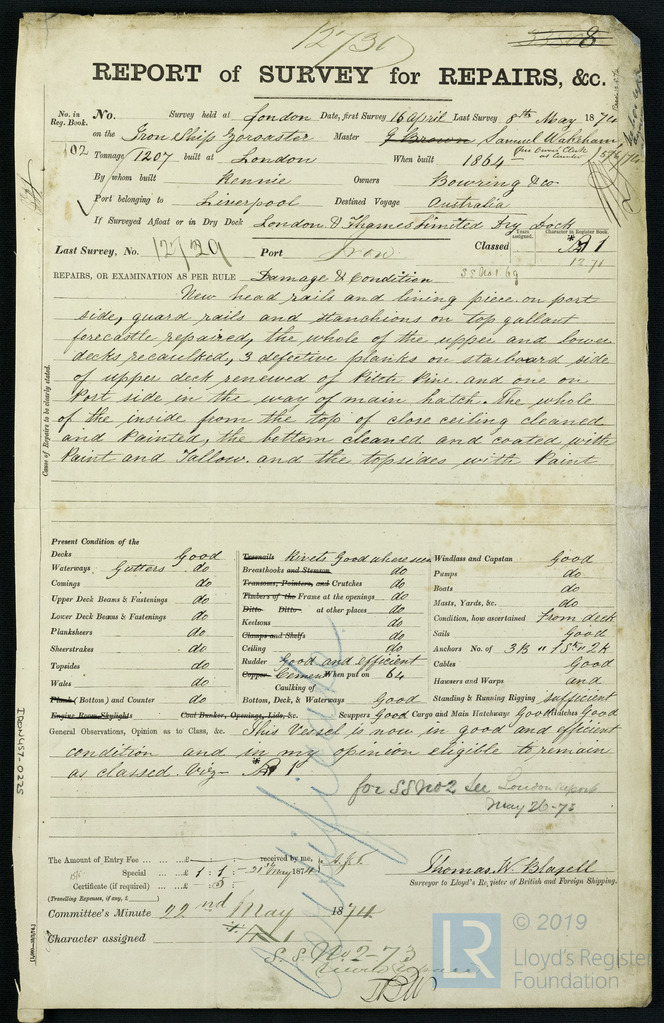 12730
8
REPORT of SURVEY for REPAIRS, &c.
No. in Reg. Book. No. Survey held at London Date, first Survey 16 April Last Survey 8th May 1874
on the Iron Ship Zoroaster Master G Brown Samuel Wakeham
192 Tonnage 1207 built at London When built 1864 Per Owners Clerk at Counter 15/6/74
By whom built Rennie Owners Bowring & co
Port belonging to Liverpool Destined Voyage Australia
If Surveyed Afloat or in Dry Dock London & Thames Limited Dry Dock
Last Survey, No. 12729 Port Iron Classed Years assigned. Character in Register Book. A 1
12 71
REPAIRS, OR EXAMINATION AS PER RULE Damage & Condition SS No 1 69
Cause of Repairs to be clearly stated.
New head rails and lining piece on port
side, guard rails and stanchions on top gallant
forecastle repaired, the whole of the upper and lower
decks recaulked, 3 defective planks on starboard side
of upper deck renewed of Pitch Pine and one on
Port side in the way of main hatch. The whole
of the inside from the top of close ceiling cleaned
and Painted, the bottom cleaned and coated with
Paint and Tallow and the topsides with Paint
Present Condition of the
Decks Good
Waterways Gutters do
Comings do
Upper Deck Beams & Fastenings do
Lower Deck Beams & Fastenings do
Planksheers do
Sheerstrakes do
Topsides do
Wales do
Plank (Bottom) and Counter do
Engine Room Skylights Coal Bunker, Openings, Lids, &c.
Treenails Rivets Good where seen
Breasthooks and Stemson do
Transoms, Pointers, and Crutches do
Timbers of the Frame at the openings do
Ditto Ditto at other places do
Keelsons do
Clamps and Shelfs do
Ceiling do
Rudder Good and efficient
Copper Cement When put on 64
Caulking of
Bottom, Deck, & Waterways Good
Scuppers Good Cargo and Main Hatchways Good Hatches Good
Windlass and Capstan Good
Pumps do
Boats do
Masts, Yards, &c. do
Condition, how ascertained From deck
Sails Good
Anchors No. of 3B 1 St 2K
Cables Good
Hawsers and Warps and
Standing & Running Rigging sufficient
General Observations, Opinion as to Class, &c. This Vessel is now in good and efficient
condition and in my opinion eligible to remain
as classed. Viz A 1
for SS No 2 See London report
May 26-73
Certificate
The Amount of Entry Fee £ : : received by me, A.J.T.
Special £ 1 : 1 : 21st May 1874
Certificate (if required) : 5 :
(Travelling Expenses, if any, £ )
Thomas. W. Blagell
Surveyor to Lloyd's Register of British and Foreign Shipping.
Committee's Minute 22nd May 1874
Character assigned A 1
S.S. No 2-73
IRON457-0225
LR © 2019
Lloyd's Register
Foundation